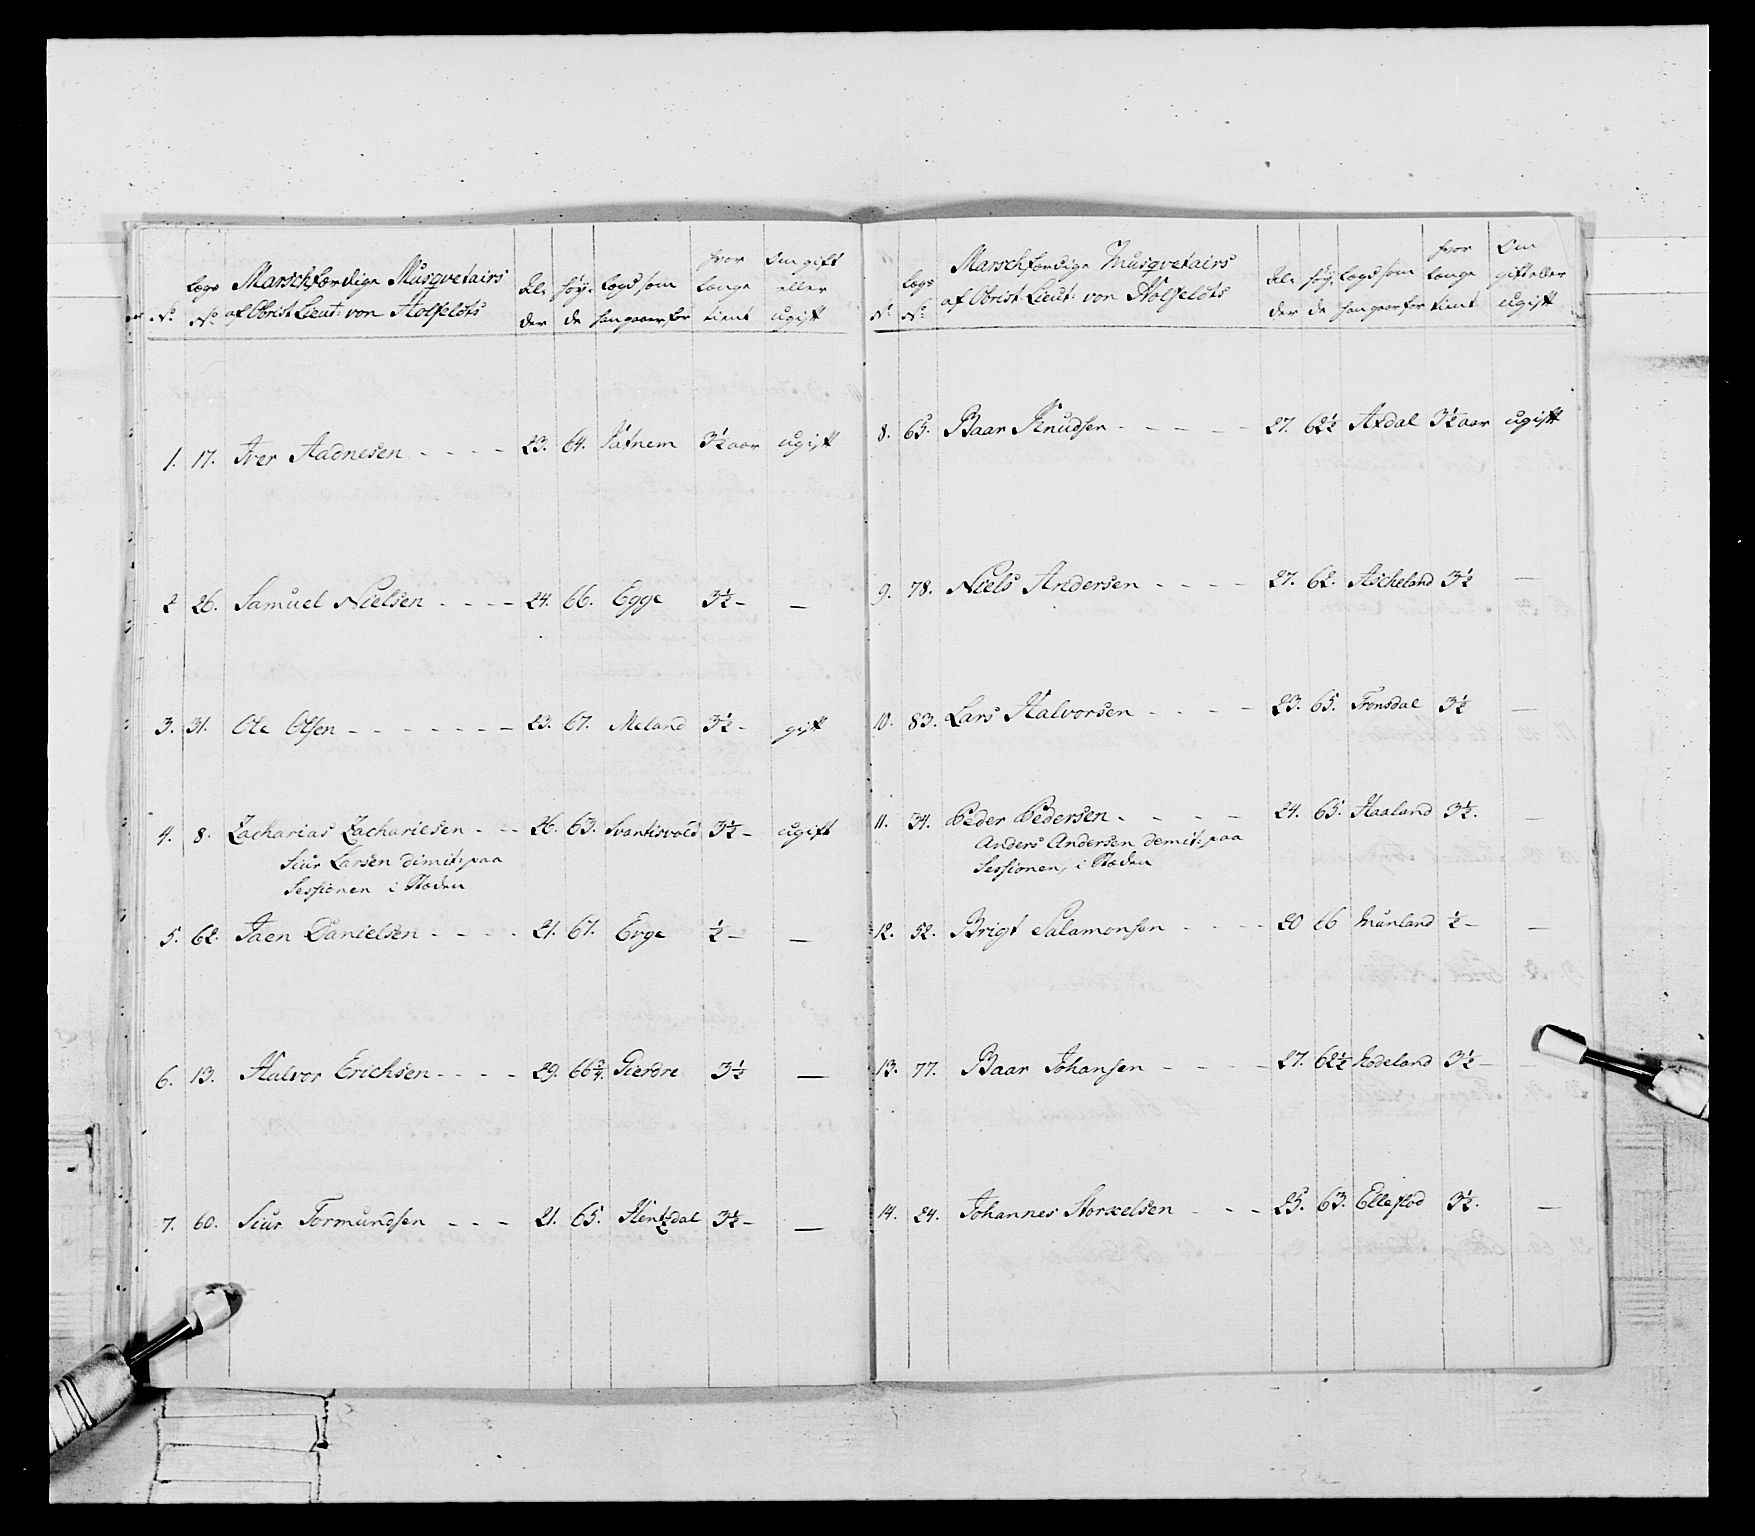 No. Lægs No. Marschfærdige Musqvetairs af Obrist Lieut: von Holfeldts Al-der Høy-de Lægd som han gaaer for hvor Længe tient Om gift eller ugift
1. 17. Iver Aadnesen - - - - 23. 64. Sätnem 3½ aar ugift
2 26. Samuel Nielsen - - - - 24. 66. Egge 3½ - —
3. 31. Ole Olsen - - - - - - - 23. 67. Meland 3½ - gift
4. 8. Zacharias Zachariesen - - - 26. 63. Svartisvold 3½ - ugift
Siur Larsen dimit: paa
Sessionen i Stæden
5. 62. Taen Danielsen - - - - 21. 67. Evge ½ - —
6. 13. Halvor Erichsen - - - - 29. 66¾. Gierdre 3½ —
7. 60. Siur Tormundsen - - - 21. 65. Hentzdal 3½ - —
No. Lægs No. Marschfærdige Musqvetairs af Obrist Lieut: von Holfeldts Al-der Høy-de Lægd som han gaaer for hvor Længe tient Om gift eller ugift
8. 65. Baar Knudsen - - - - - 27. 62½ Axdal 3½ aar ugift
9. 78. Niels Andersen - - - - 27. 62. Ascheland 3½ —
10. 83. Lars Halvorsen - - - - 23. 65. Tronsdal 3½ —
11. 34. Peder Pedersen - - - - 24. 65. Haaland 3½. —
Anders Andersen demit: paa
Sessionen, i Stæden
12. 52. Brigt Salamonsen - - - - 20 66 Munland ½ - —
13. 77. Baar Johansen - - - - 27. 62½ Rodeland 3½ - —
14. 24. Johannes Storxelsen - - - 25. 63. Elleflod 3½. —